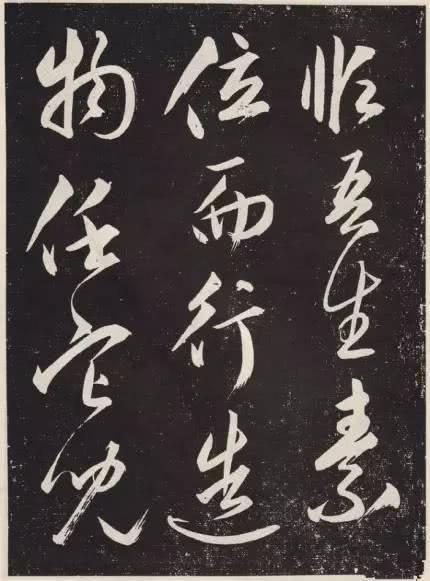 惟吾生素
位而行造
物任它兒